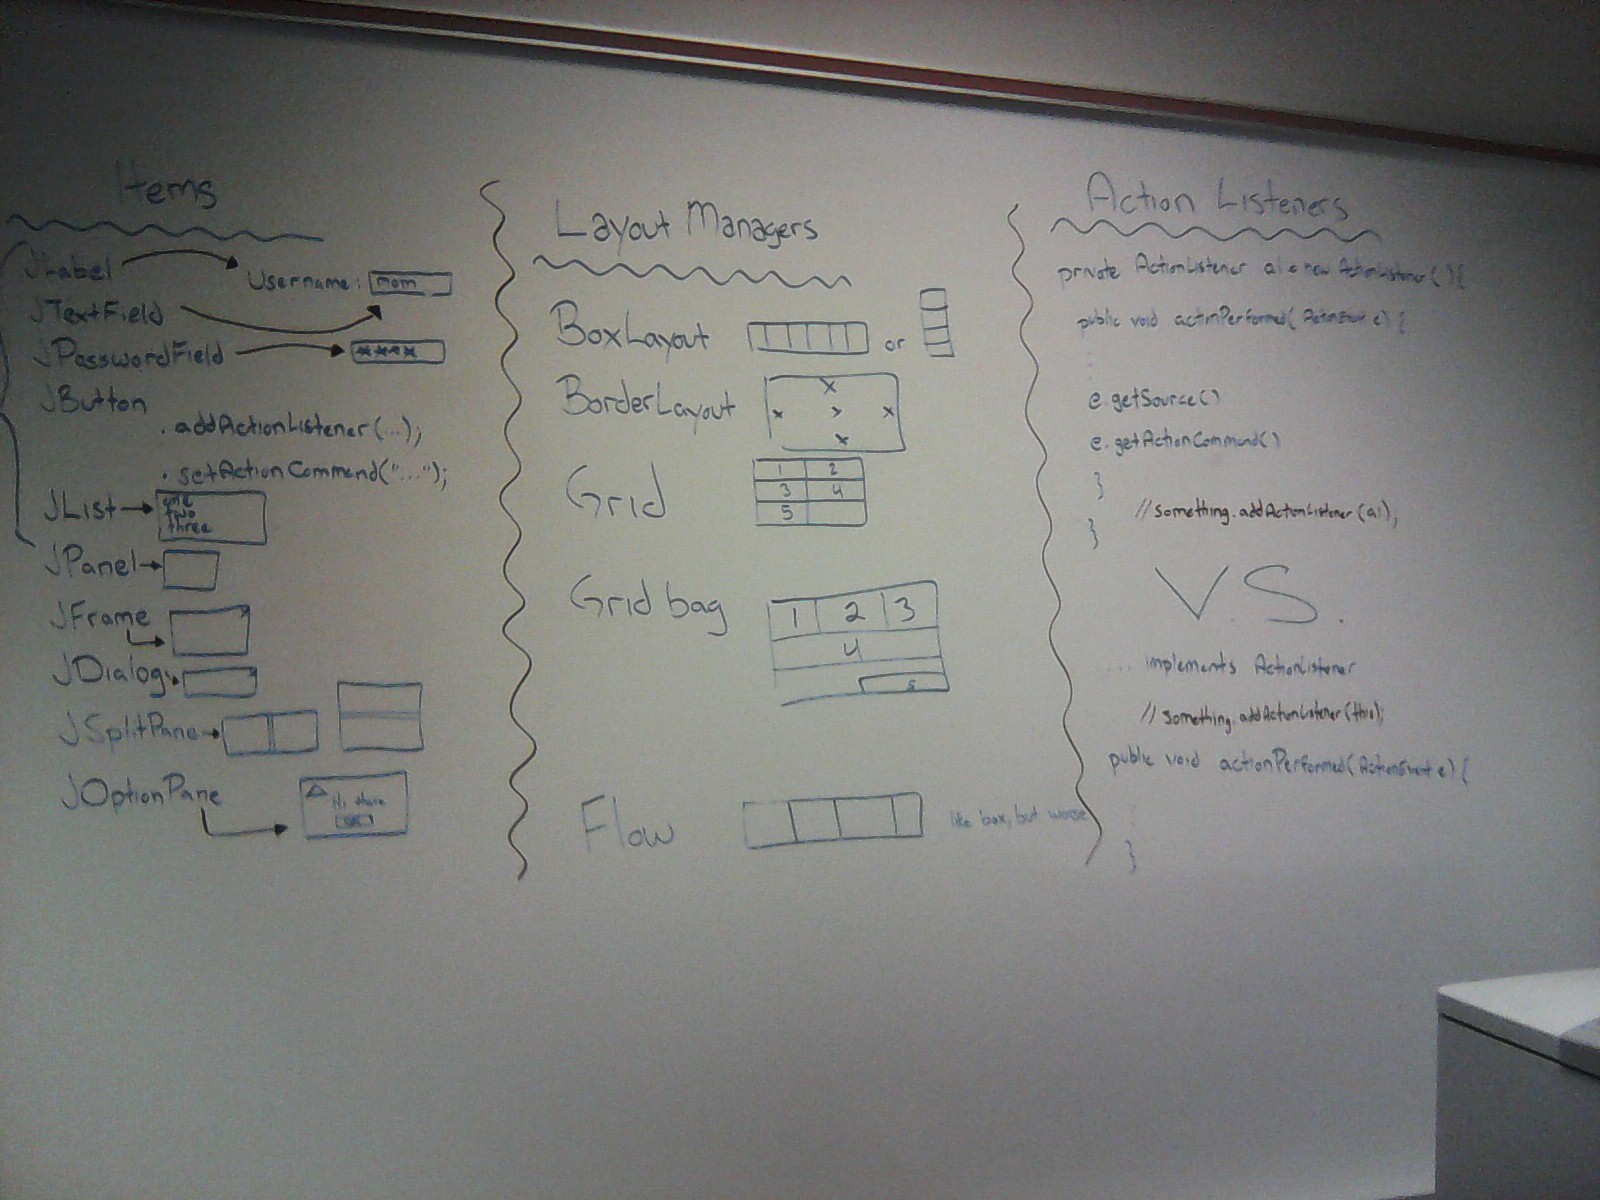 Items
JLabel
Username: nom
JTextField
JPasswordField ****
JButton
. addActionListener(...);
. setActionCommand("...");
JList
one
two
three
JPanel
JFrame
JDialog
JSplitPane
JOptionPane
Hi there
OK
Layout Managers
BoxLayout or
BorderLayout
x
x x x
x
Grid
1 2
3 4
5
Grid bag
1 2 3
4
5
Flow like box, but worse
Action Listeners
private ActionListener al = new ActionListener(){
public void actionPerformed(ActionEvent e) {
e.getSource()
e.getActionCommand()
}
// something.addActionListener(al);
}
V.S.
... implements ActionListener
// something.addActionListener(this);
public void actionPerformed(ActionEvent e) {
}